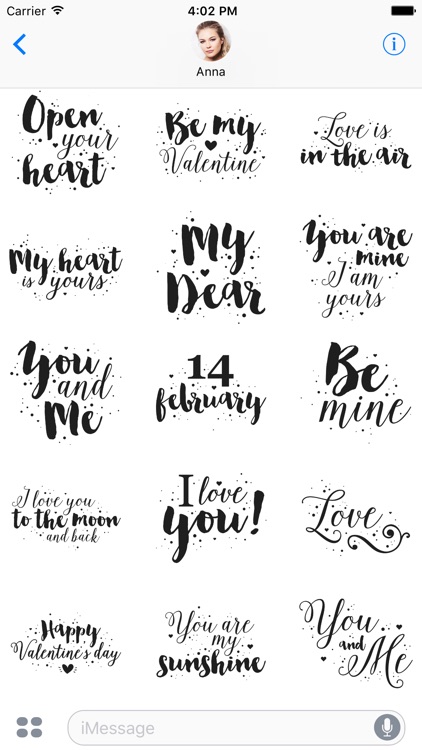 Carrier 4:02 PM
Anna
Open
your
heart
Be my
Valentine
Love is
in the air
My heart
is yours
My
Dear
You are
mine
I am
yours
You
and
Me
14
february
Be
mine
I love you
to the moon
and back
I love
you!
Love
Happy
Valentine's day
You are
my
sunshine
You
and
Me
iMessage